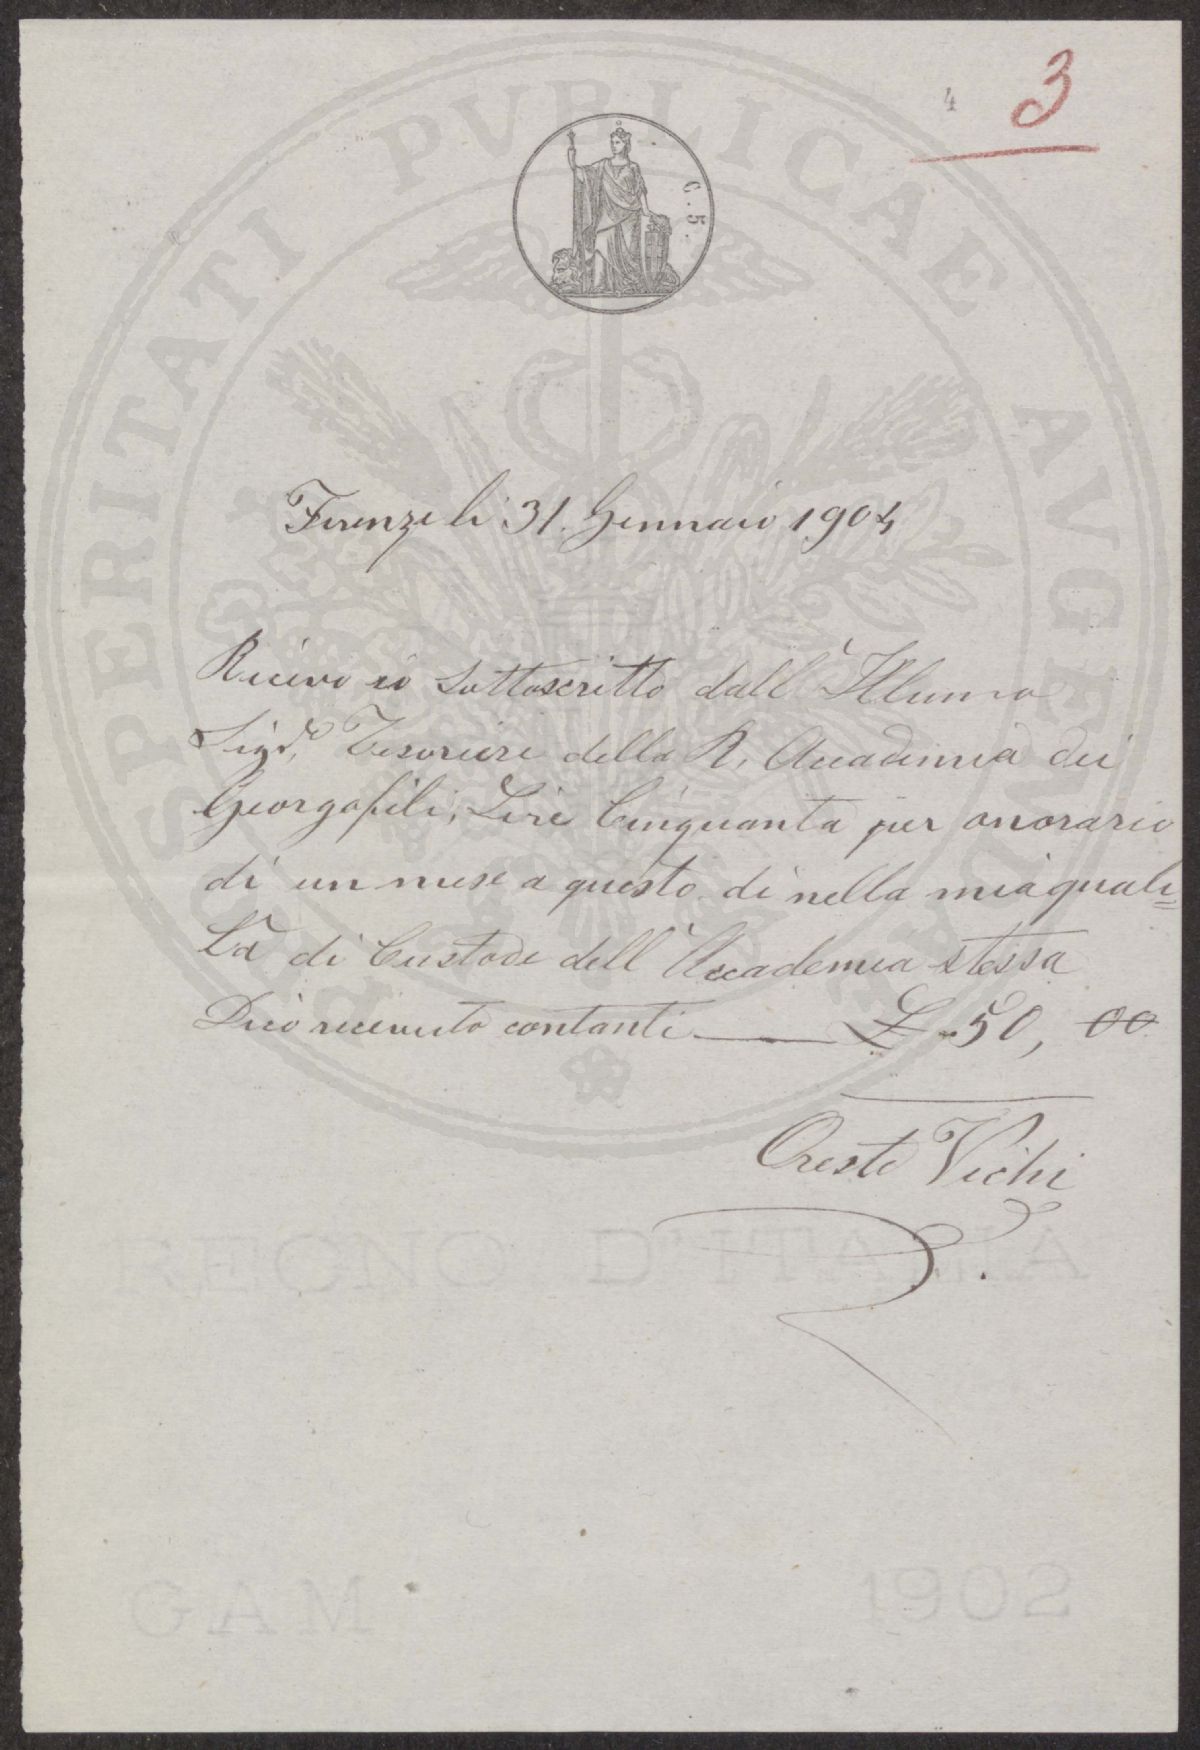 4 3
C. 5.
PROSPERITATI PVBLICAE AVGENDAE
Firenze li 31. Gennaio 1904
Ricevo io Sottoscritto dall' Illumo
Sigr. Tesoriere della R. Accademia dei
Georgofili, Lire Cinquanta per onorario
di un mese a questo dì nella mia quali=
tà di Custode dell' Accademia stessa
Dico ricevuto contanti £ 50, 00
Oreste Vichi
REGNO D'ITALIA
GAM 1902